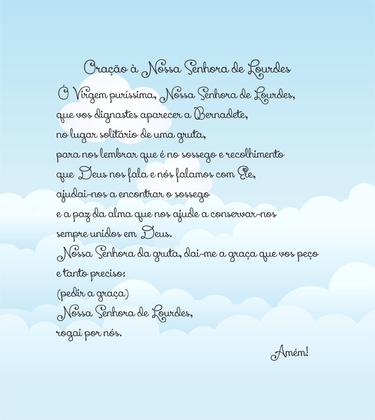 Oração à Nossa Senhora de Lourdes
Ó Virgem puríssima, Nossa Senhora de Lourdes,
que vos dignastes aparecer a Bernadete,
no lugar solitário de uma gruta,
para nos lembrar que é no sossego e recolhimento
que Deus nos fala e nós falamos com Ele,
ajudai-nos a encontrar o sossego
e a paz da alma que nos ajude a conservar-nos
sempre unidos em Deus.
Nossa Senhora da gruta, dai-me a graça que vos peço
e tanto preciso:
(pedir a graça)
Nossa Senhora de Lourdes,
rogai por nós.
Amém!